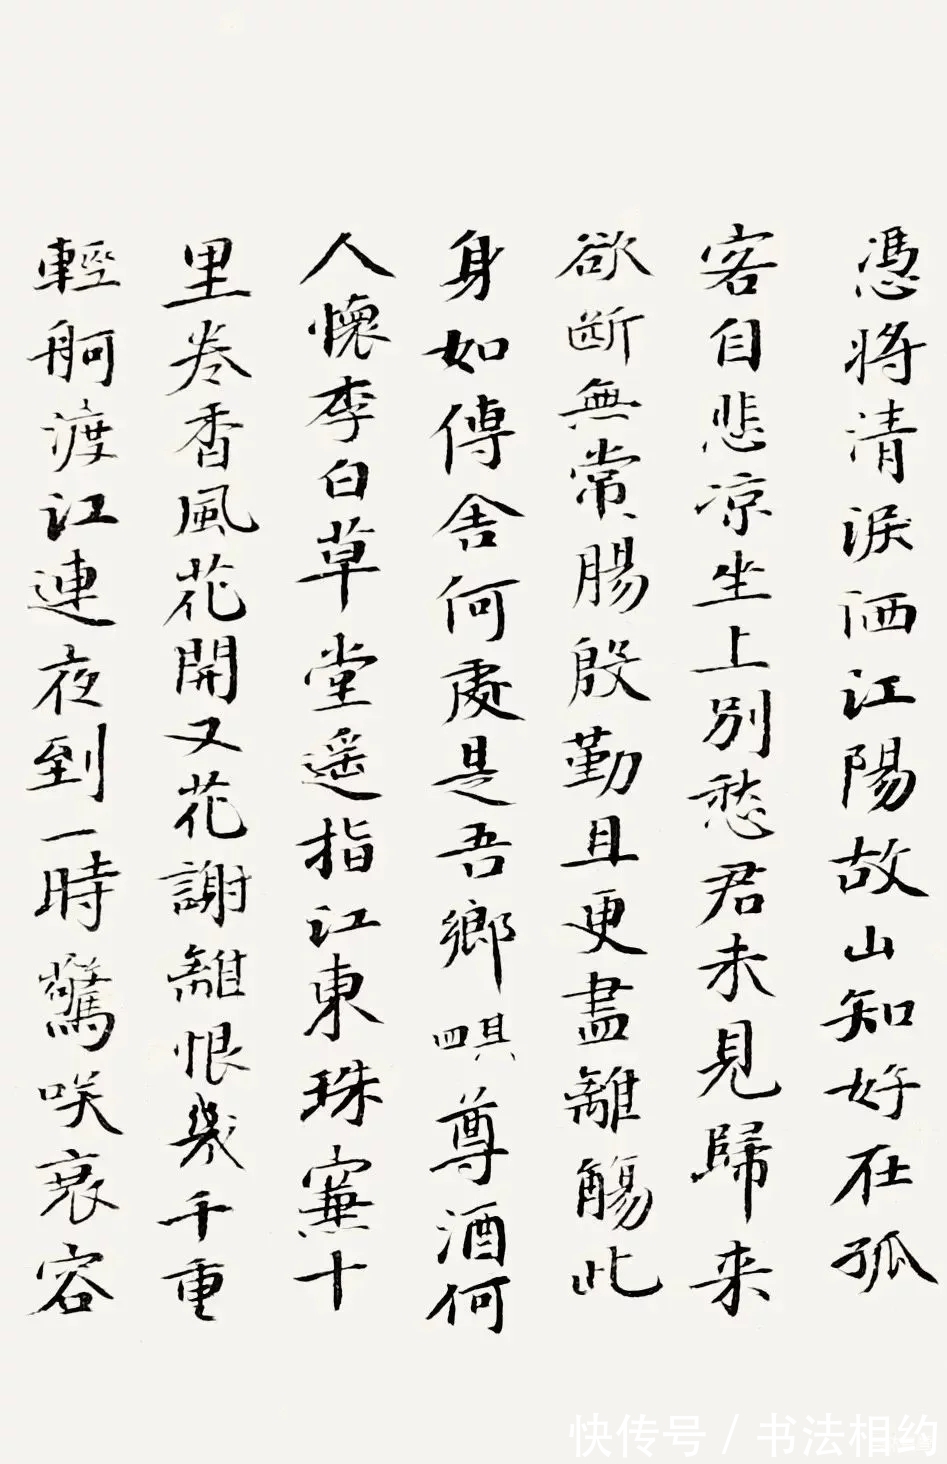 憑將清淚洒江陽故山知好在孤
客自悲凉坐上別愁君未見歸来
欲斷無常腸殷勤且更盡離觴此
身如傳舍何處是吾鄉 尊酒何
人懷李白草堂遥指江東珠簾十
里卷香風花開又花謝離恨幾千重
輕舸渡江連夜到一時驚咲衰容
快传号 / 书法相约